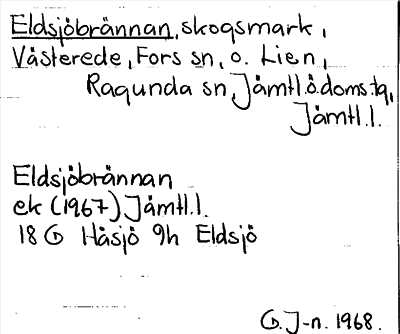 Eldsjöbrännan, skogsmark,
Västerede, Fors sn, o. Lien,
Ragunda sn, Jämtl.ö.doms.tg,
Jämtl.l.
Eldsjöbrännan
ek (1967) Jämtl.l.
18 G Håsjö 9h Eldsjö
G. J-n. 1968.